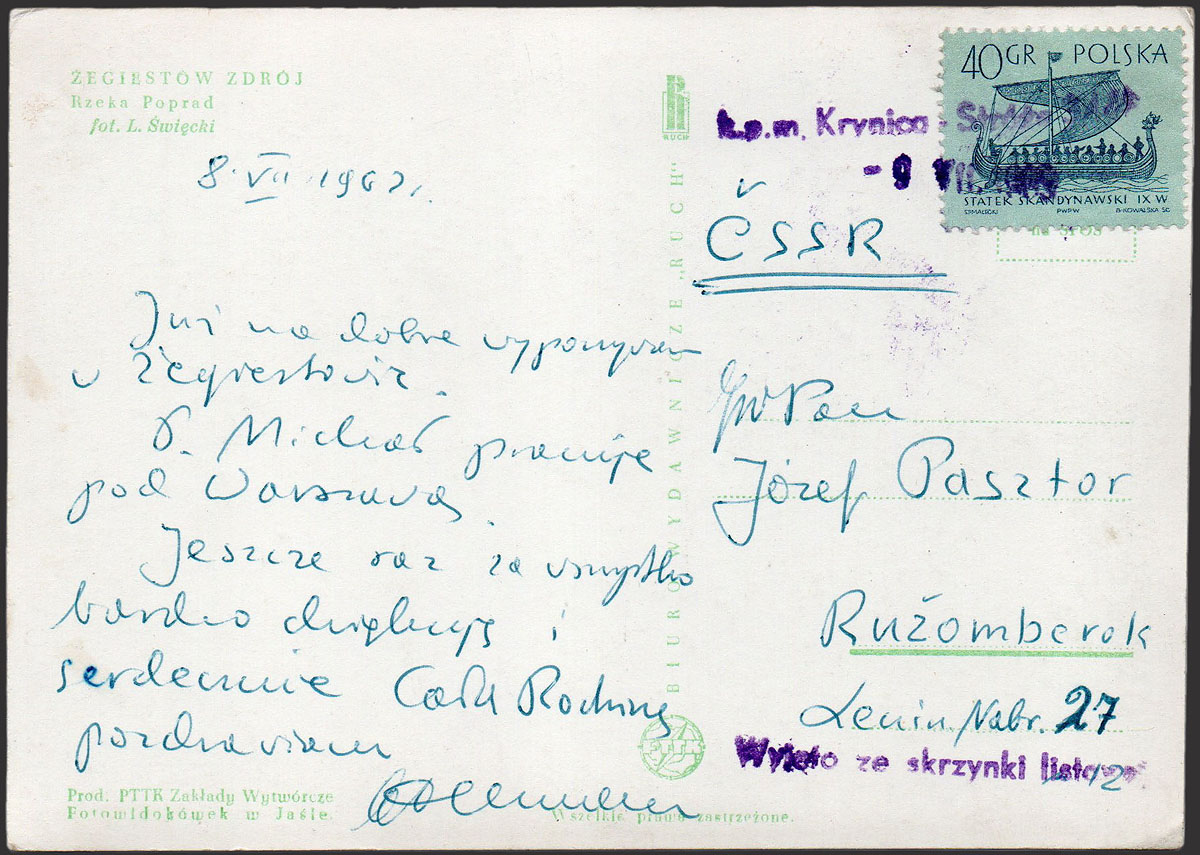 ŻEGIESTÓW ZDRÓJ
Rzeka Poprad
fot. L. Święcki
8. VII 1963 r.
Już na dobre wypoczywam
w Żegiestowie.
P. Michał pracuje
pod Warszawą.
Jeszcze raz za wszystko
bardzo dziękuję i
serdecznie Całą Rodzinę
pozdrawiam
Prod. PTTK Zakłady Wytwórcze
Fotowidokówek w Jaśle.
Wszelkie prawa zastrzeżone.
RUCH
BIURO WYDAWNICZE „RUCH"
PTTK
40 GR POLSKA
STATEK SKANDYNAWSKI IX W
PWPW B·KOWALSKA SC
Krynica -
- 9 VII.
ČSSR
JW Pan
Józef Pasztor
Rużomberok
Lenin. Nabr. 27
Wyjęto ze skrzynki listowej